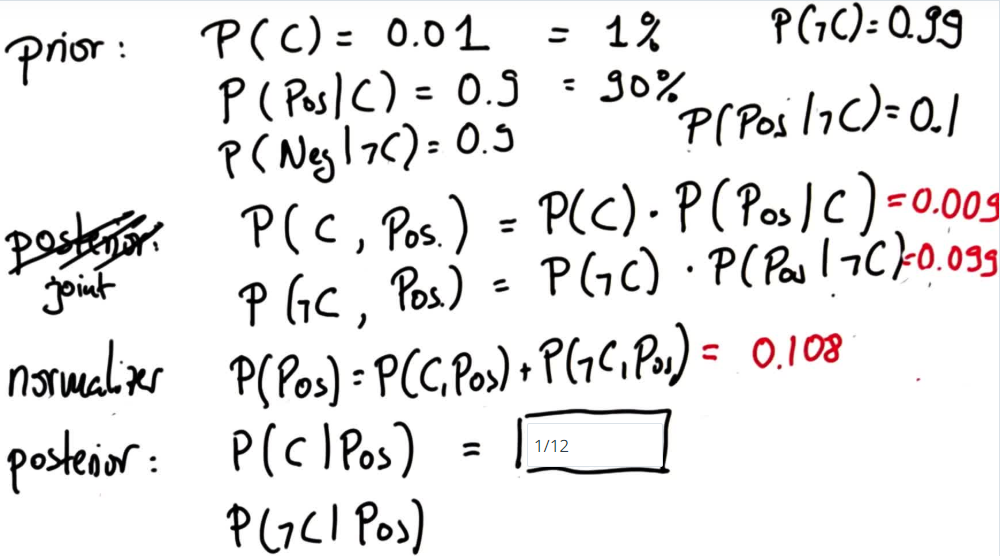 prior: P(C) = 0.01 = 1% P(¬C) = 0.99
P(Pos|C) = 0.9 = 90%
P(Pos|¬C) = 0.1
P(Neg|¬C) = 0.9
posterior: P(C, Pos.) = P(C) · P(Pos|C) = 0.009
joint P(¬C, Pos.) = P(¬C) · P(Pos|¬C) = 0.099
normalizer P(Pos) = P(C,Pos) + P(¬C,Pos) = 0.108
posterior: P(C|Pos) = 1/12
P(¬C|Pos)